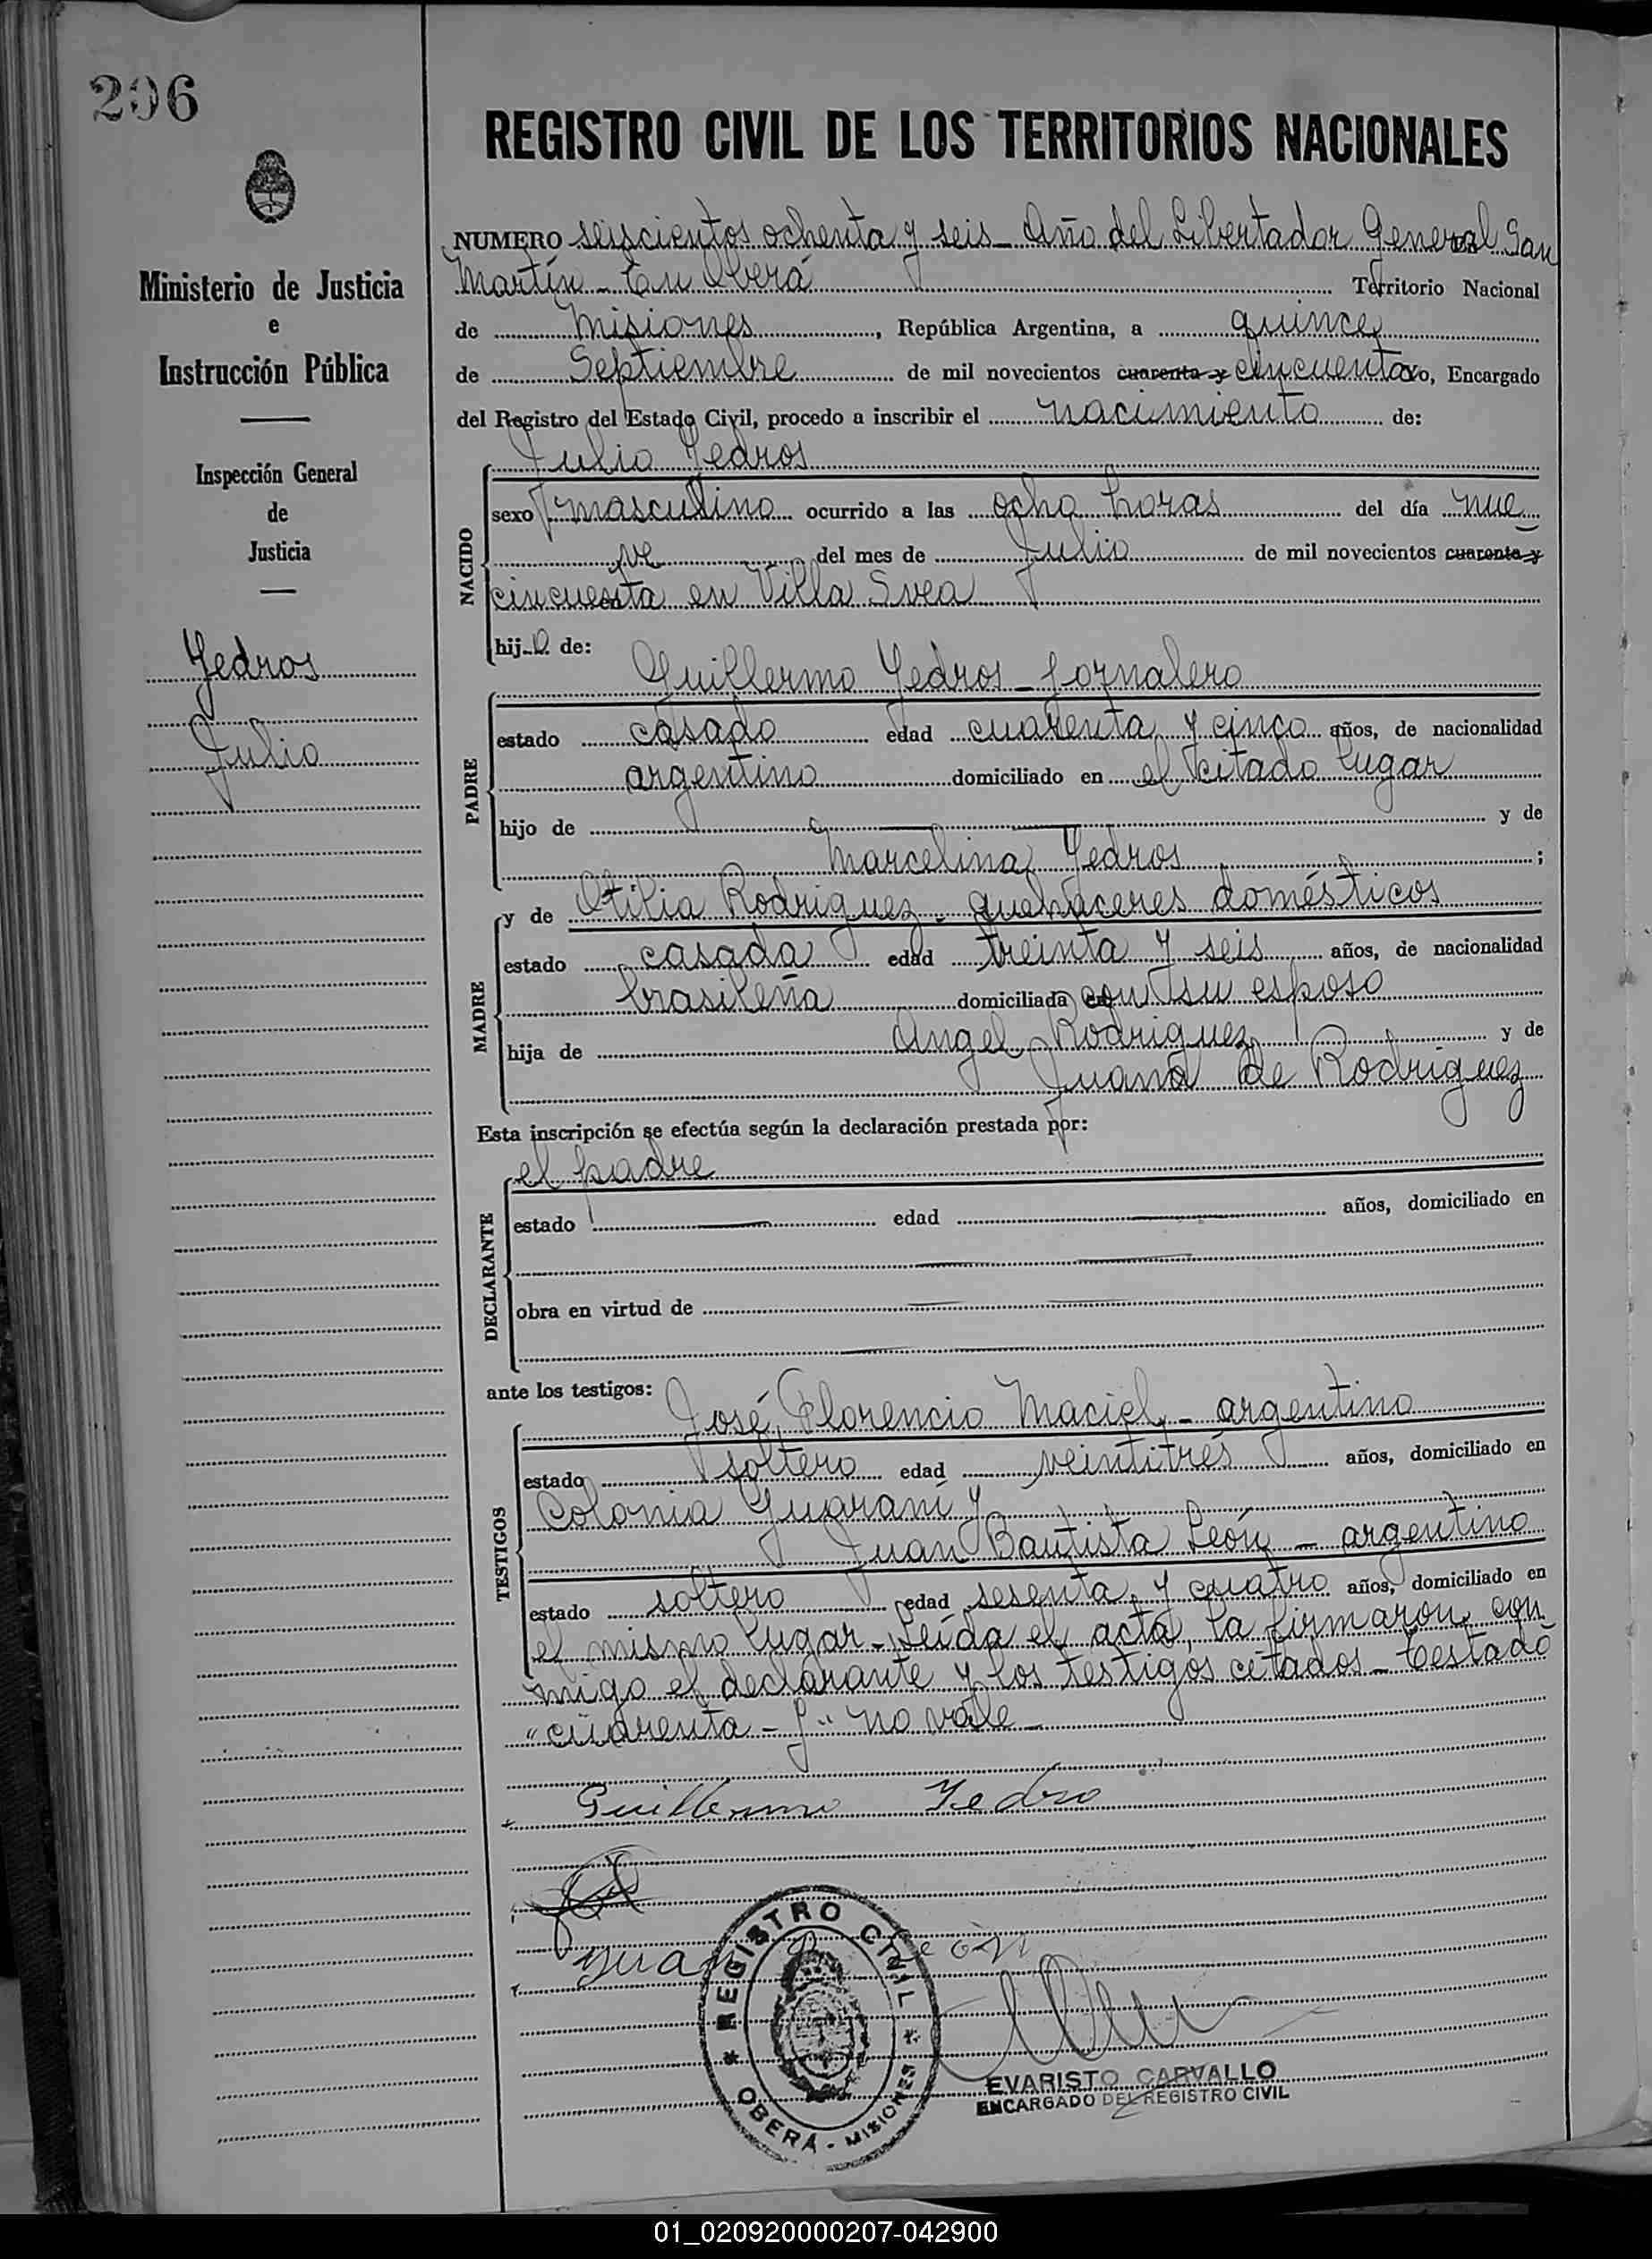 206
REGISTRO CIVIL DE LOS TERRITORIOS NACIONALES
Ministerio de Justicia
e
Instrucción Pública
Inspección General
de
Justicia
Yedros
Julio
NUMERO seiscientos ochenta y seis - Año del Libertador General San
Martín - En Oberá Territorio Nacional
de Misiones, República Argentina, a quince
de Septiembre de mil novecientos cuarenta y cincuenta yo, Encargado
del Registro del Estado Civil, procedo a inscribir el nacimiento de:
Julio Yedros
NACIDO
sexo masculino ocurrido a las ocho horas del día nue
ve del mes de Julio de mil novecientos cuarenta y
cincuenta en Villa Svea
hijo de:
Guillermo Yedros - Jornalero
PADRE
estado casado edad cuarenta y cinco años, de nacionalidad
argentino domiciliado en el citado lugar
hijo de y de
Marcelina Yedros ;
MADRE
y de Otilia Rodriguez - quehaceres domésticos
estado casada edad treinta y seis años, de nacionalidad
brasileña domiciliada con su esposo
hija de Angel Rodriguez y de
Juana de Rodriguez
Esta inscripción se efectúa según la declaración prestada por:
el padre
DECLARANTE
estado edad años, domiciliado en
obra en virtud de
ante los testigos:
José Florencio Maciel - argentino
TESTIGOS
estado soltero edad veintitrés años, domiciliado en
Colonia Guaraní y
Juan Bautista León - argentino
estado soltero edad sesenta y cuatro años, domiciliado en
el mismo lugar - Leída el acta, la firmaron con
migo el declarante y los testigos citados - Testado
"cuarenta - y" no vale -
Guillermo Yedro
Juan B León
REGISTRO CIVIL
* OBERÁ - MISIONES *
EVARISTO CARVALLO
ENCARGADO DEL REGISTRO CIVIL
01_020920000207-042900